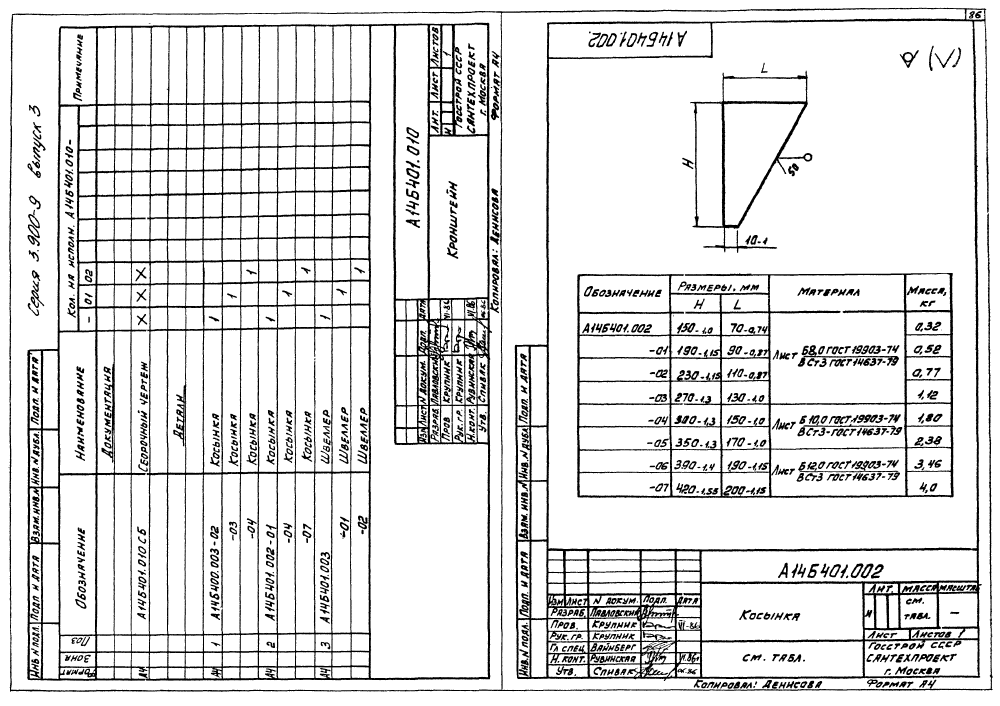 86
Серия 3.900-9 выпуск 3
Формат
Зона
Поз
Обозначение
Наименование
Кол. на исполн. А14Б401.010-
- 01 02
Примечание
Документация
А4 А14Б401.010 СБ Сборочный чертеж X X X
Детали
А4 1 А14Б400.003-02 Косынка 1
-03 Косынка 1
-04 Косынка 1
А4 2 А14Б401.002-01 Косынка 1
-04 Косынка 1
-07 Косынка 1
А4 3 А14Б401.003 Швеллер 1
-01 Швеллер 1
-02 Швеллер 1
Инв.№ подл. Подп. и дата Взам. инв.№ Инв.№ дубл. Подп. и дата
А14Б401.010
Изм Лист № докум. Подп. Дата
Разраб. Павловский
Пров. Крупник VI-86
Рук.гр. Крупник
Н.конт. Рувинская VI.86
Утв. Спивак
Кронштейн
Лит. Лист Листов
И 1
Госстрой СССР
Сантехпроект
г. Москва
Копировал: Денисова
Формат А4
А14Б401.002
L
H
50
10-1
Обозначение Размеры, мм Материал Масса, кг
H L
А14Б401.002 150-1,0 70-0,74 0,32
-01 190-1,15 90-0,87 Лист Б8,0 ГОСТ 19903-74 0,52
ВСт3 ГОСТ 14637-79
-02 230-1,15 110-0,87 0,77
-03 270-1,3 130-1,0 1,12
-04 300-1,3 150-1,0 Лист Б10,0 ГОСТ 19903-74 1,80
ВСт3-ГОСТ 14637-79
-05 350-1,3 170-1,0 2,38
-06 390-1,4 190-1,15 Лист Б12,0 ГОСТ 19903-74 3,46
ВСт3 ГОСТ 14637-79
-07 420-1,55 200-1,15 4,0
Инв.№ подл. Подп. и дата Взам. инв.№ Инв.№ дубл. Подп. и дата
А14Б401.002
Изм Лист № докум. Подп. Дата
Разраб. Павловский
Пров. Крупник VI-86
Рук.гр. Крупник
Гл.спец. Вайнберг
Н.конт. Рувинская VI.86
Утв. Спивак 06.86
Косынка
См. табл.
Лит. Масса Масштаб
И См. табл. —
Лист Листов 1
Госстрой СССР
Сантехпроект
г. Москва
Копировал: Денисова
Формат А4